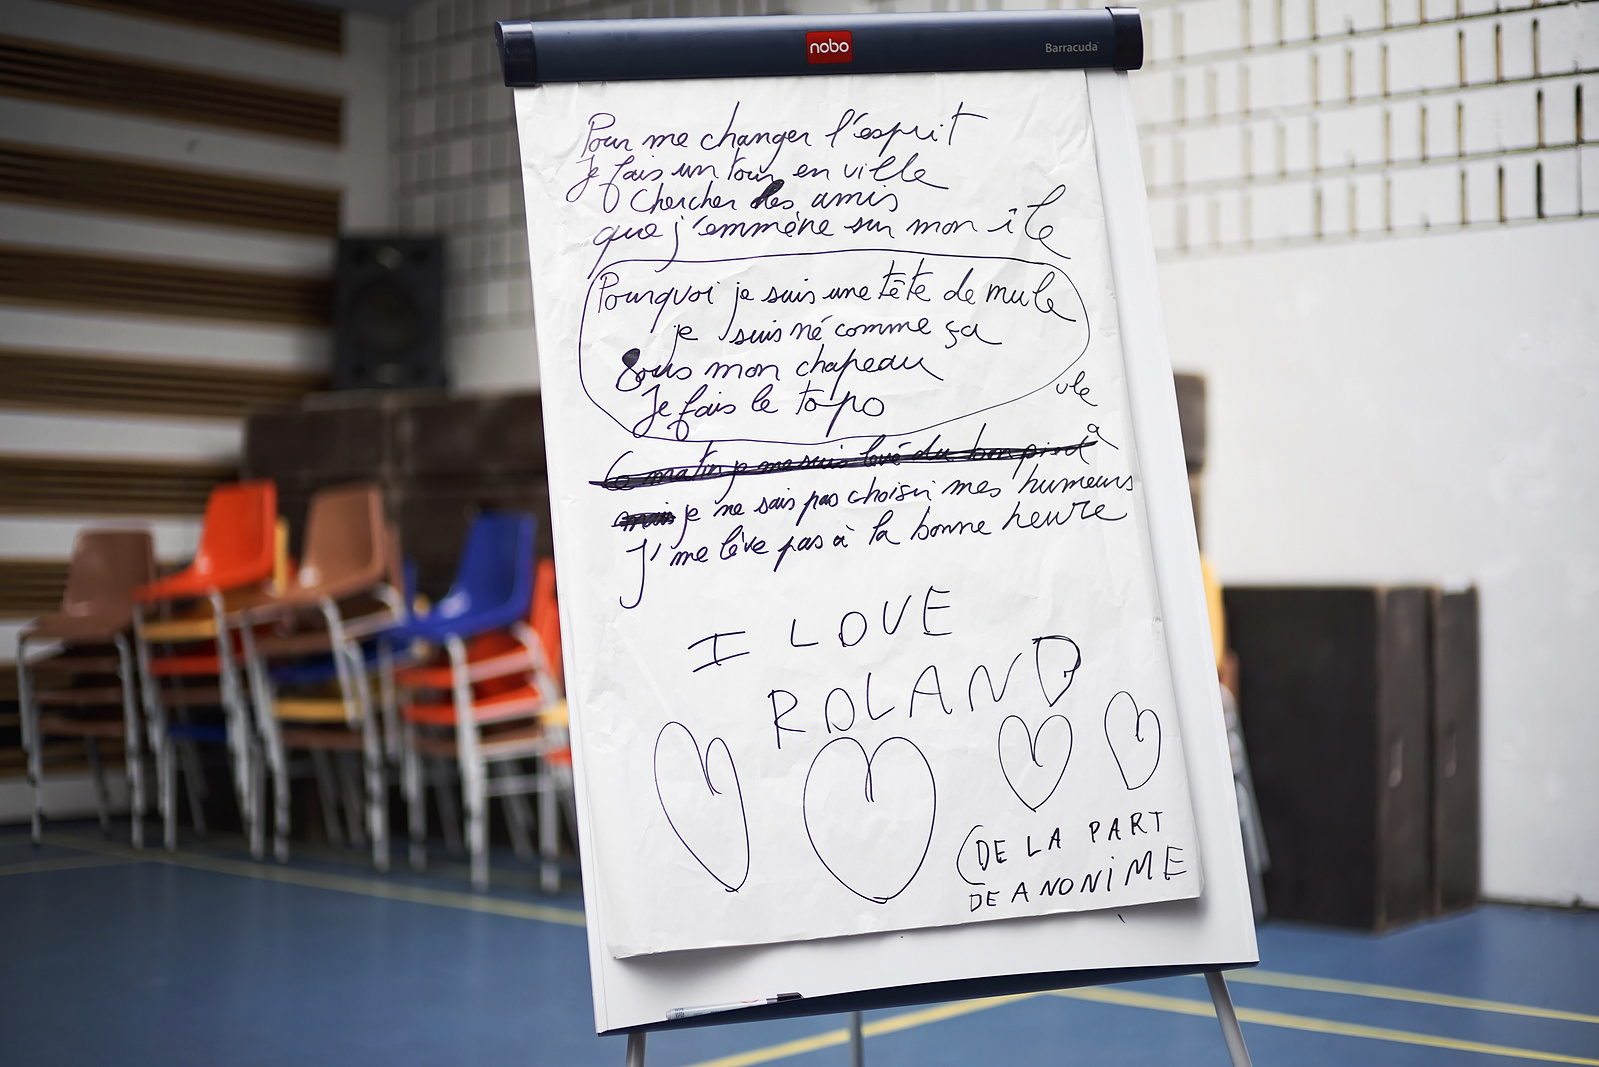 nobo
Barracuda
Pour me changer l'esprit
Je fais un tour en ville
Chercher des amis
que j'emmène sur mon île
Pourquoi je suis une tête de mule
je suis né comme ça
Sous mon chapeau
Je fais le topo
ule
Ce matin je me suis levé du bon pied
à
mais je ne sais pas choisir mes humeurs
J'me lève pas à la bonne heure
I LOVE
ROLAND
(DE LA PART
DE ANONiME